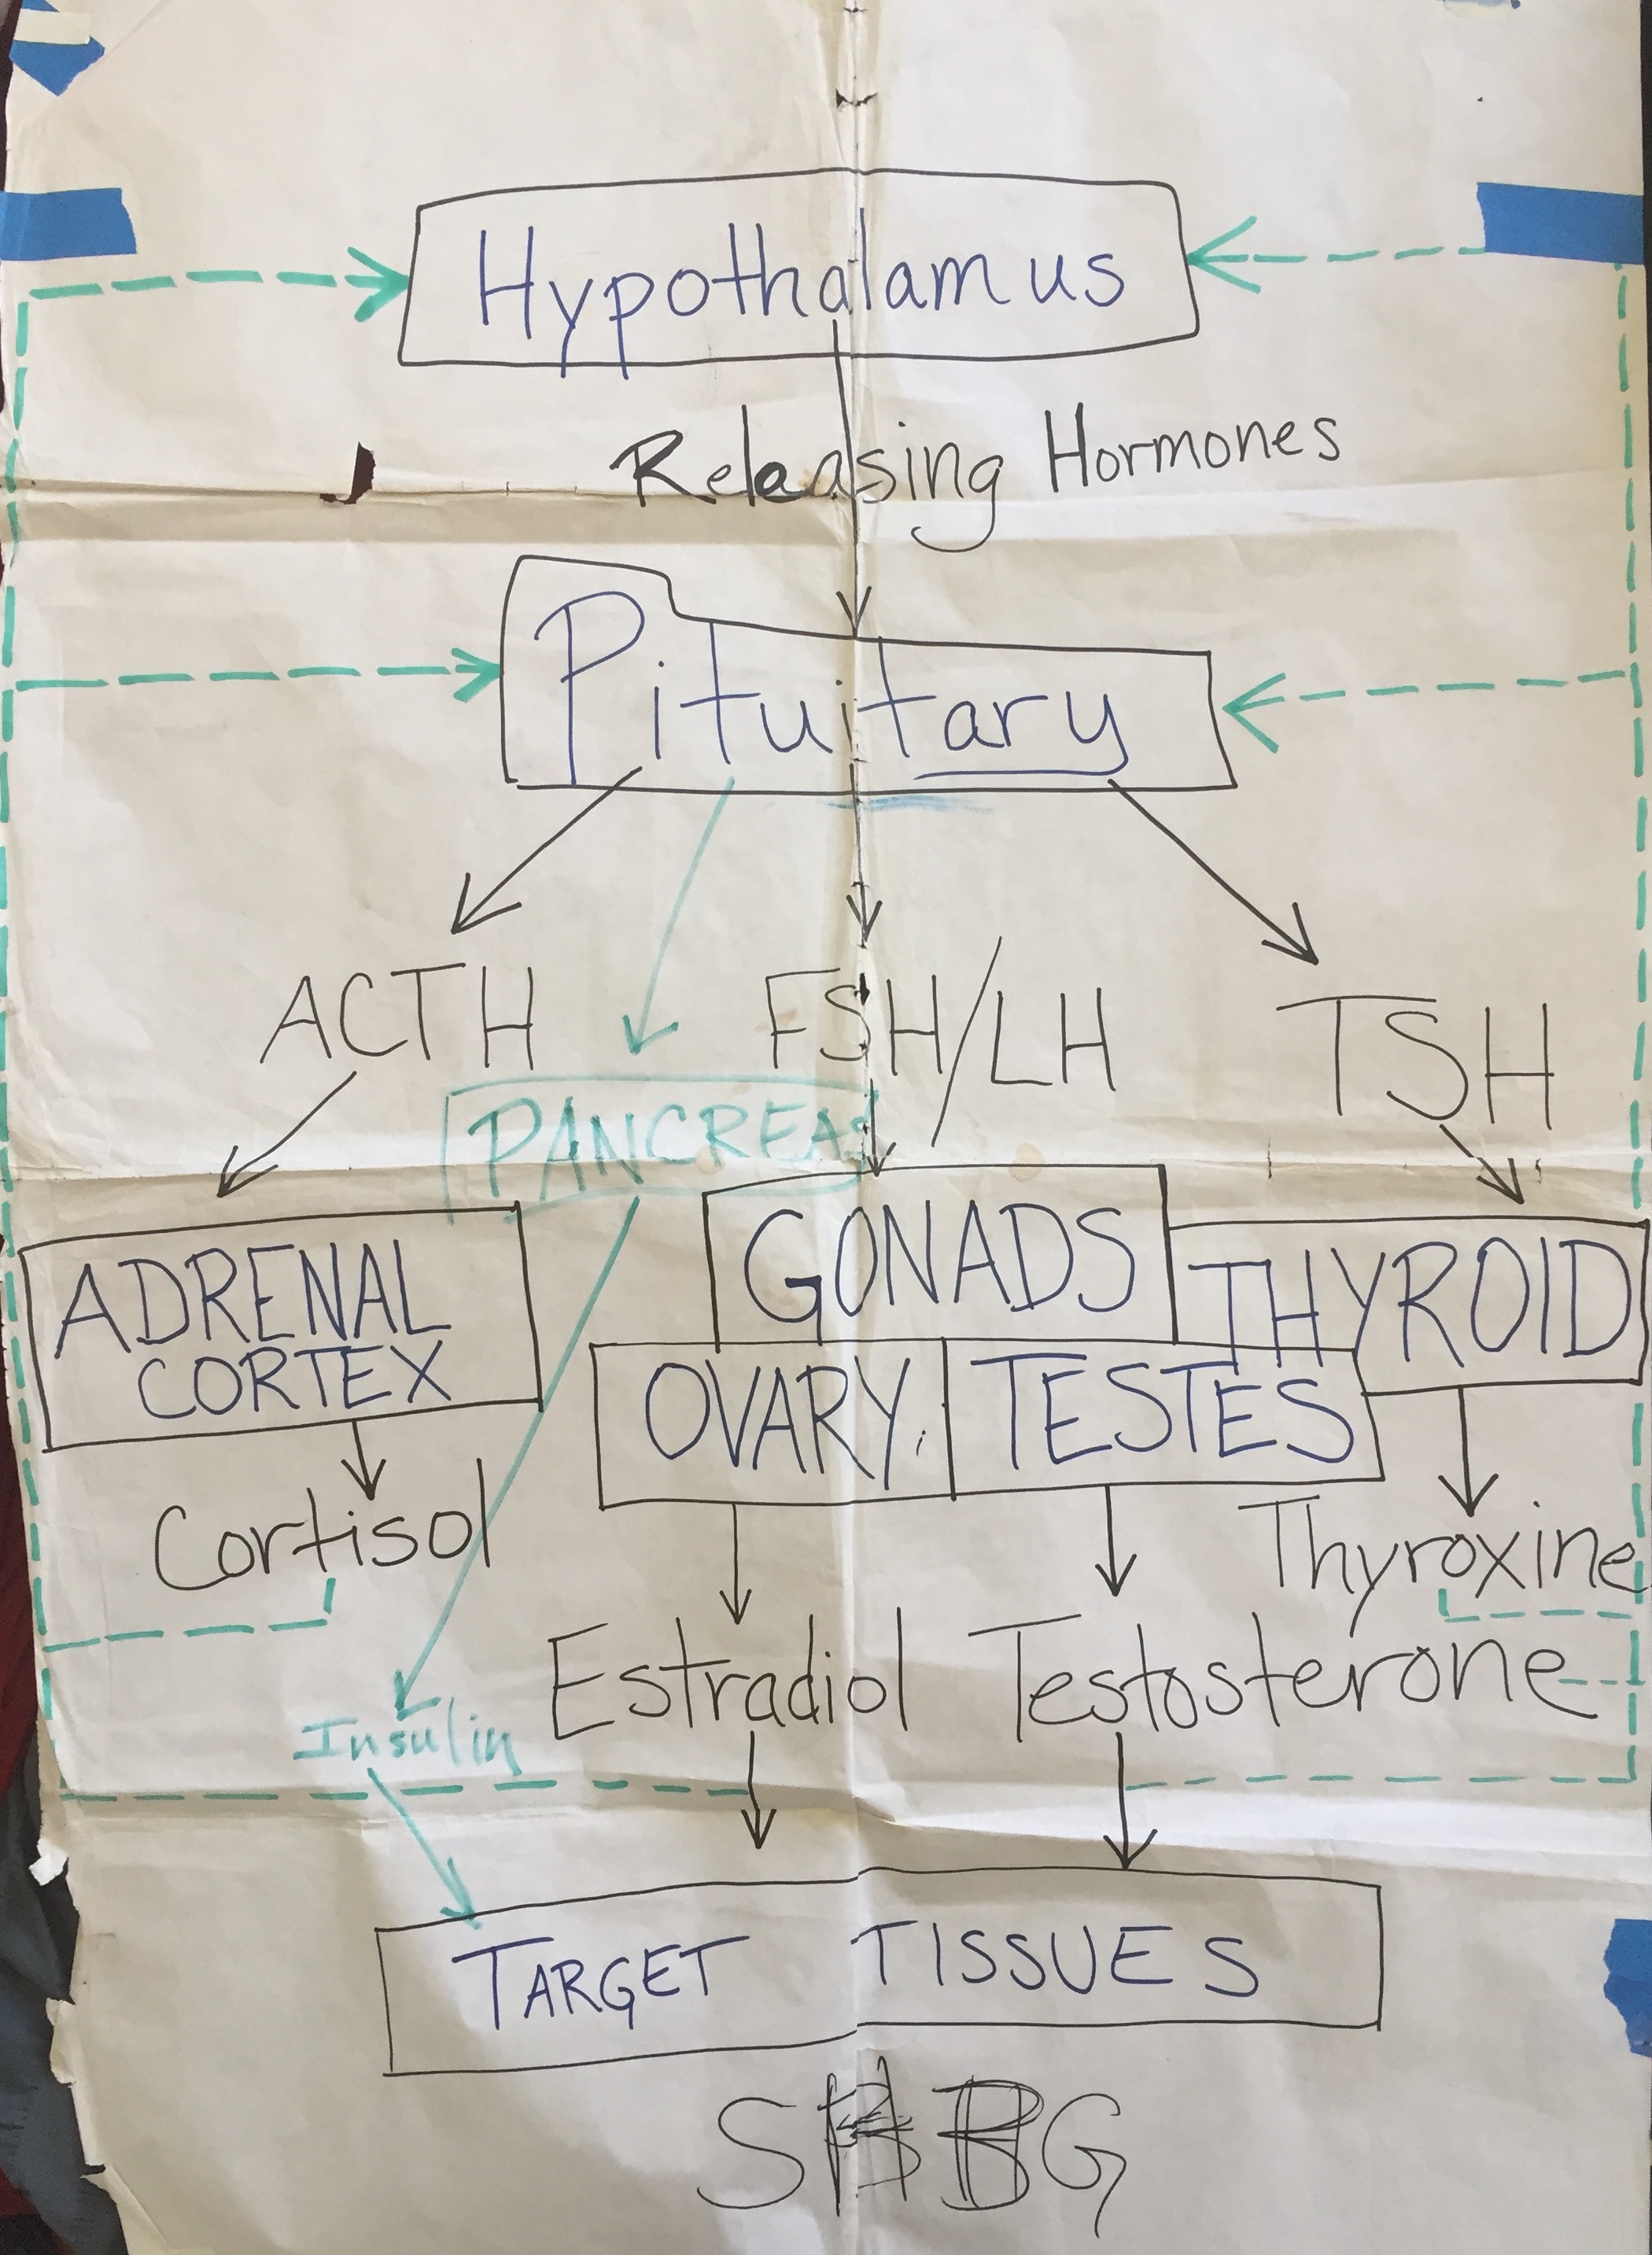 Hypothalamus
Releasing Hormones
Pituitary
ACTH
FSH/LH
TSH
PANCREAS
ADRENAL
CORTEX
GONADS
THYROID
OVARY
TESTES
Cortisol
Thyroxine
Estradiol
Testosterone
Insulin
TARGET TISSUES
SHBG